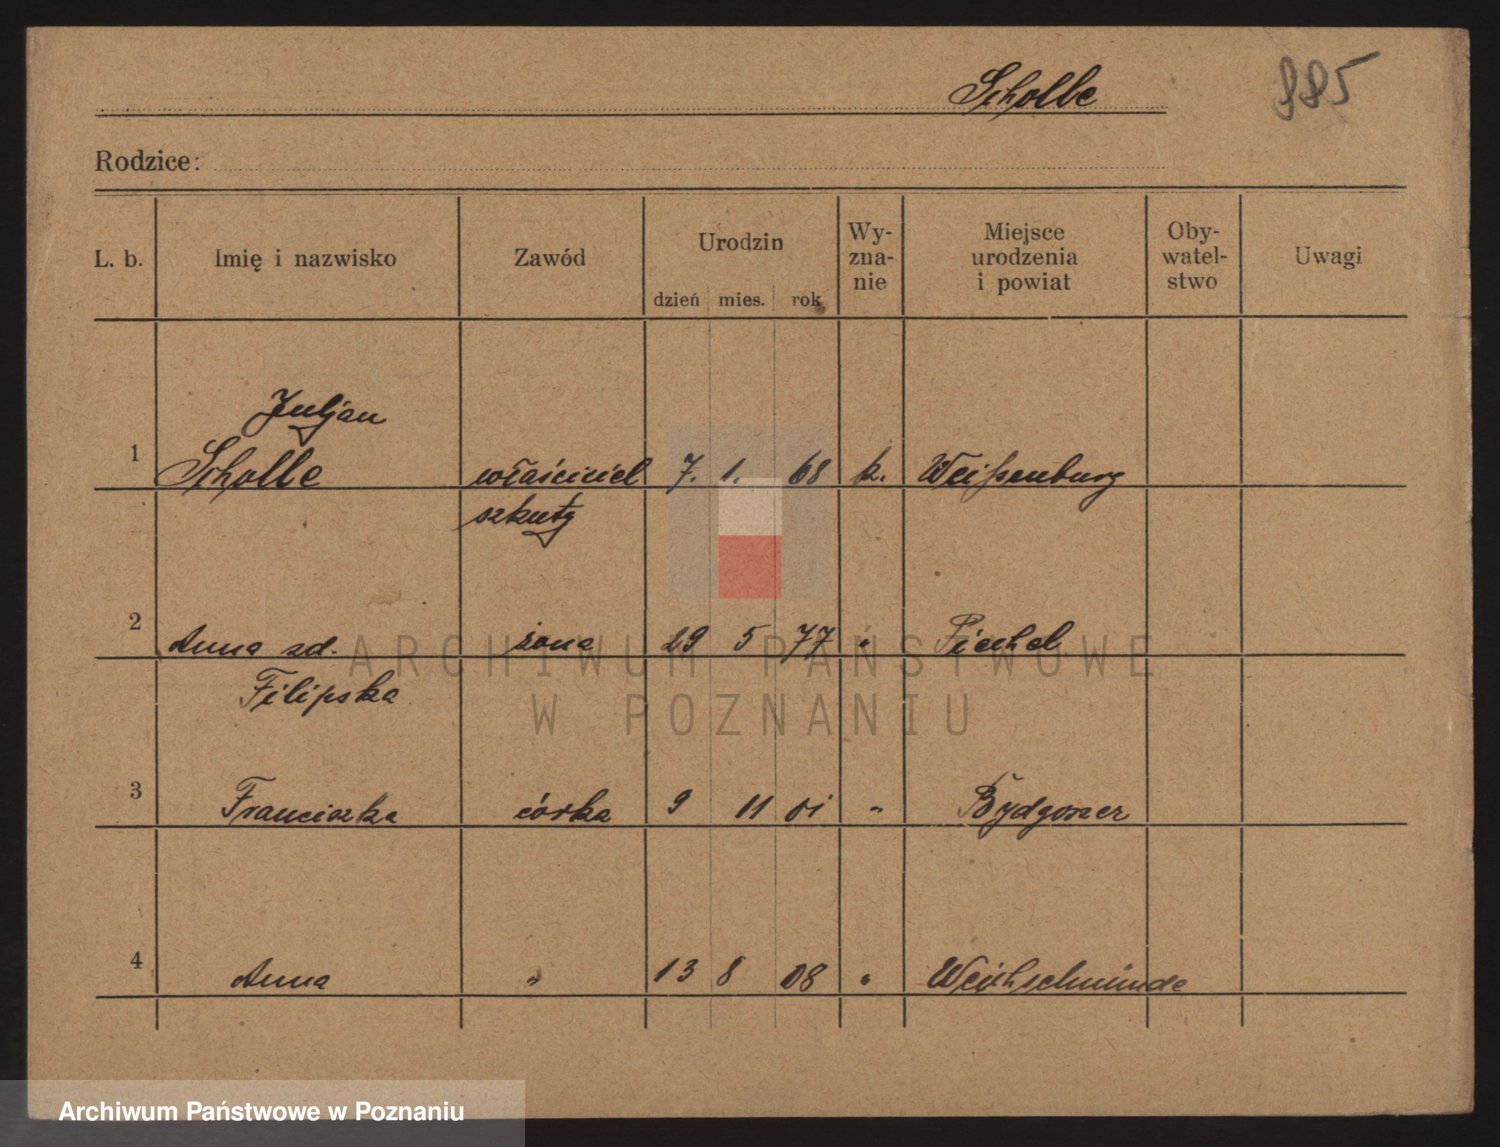 Scholle
885
Rodzice:
L. b. Imię i nazwisko Zawód Urodzin dzień mies. rok Wy-zna-nie Miejsce urodzenia i powiat Oby-watel-stwo Uwagi
Juljan
1 Scholle właściciel 7. 1. 68 k. Weißenburg
szkuty
2 Anna zd. żona 29 5 77 " Piechel
Filipska
3 Franciszka córka 9 11 01 " Bydgoszcz
4 Anna " 13 8 08 " Weichselmünde
ARCHIWUM PAŃSTWOWE
W POZNANIU
Archiwum Państwowe w Poznaniu